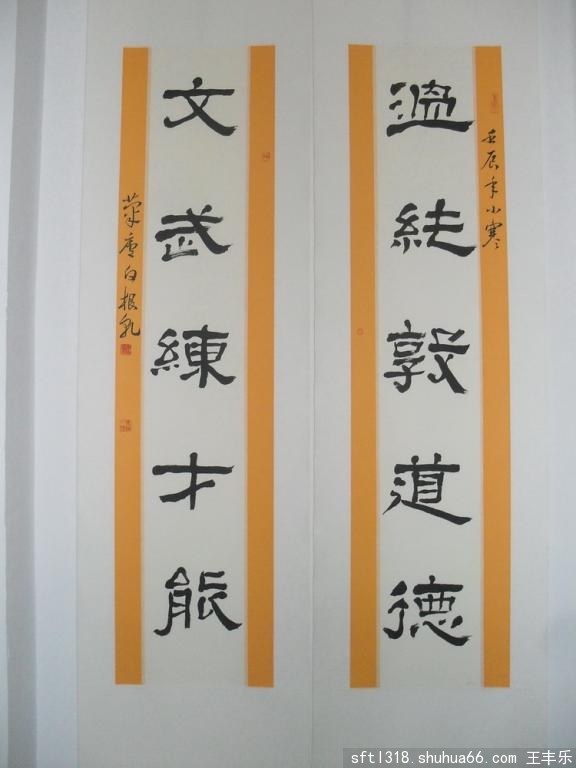 壬辰年小寒
溫純敦道德
文武練才能
sftl318.shuhua66.com 王丰乐